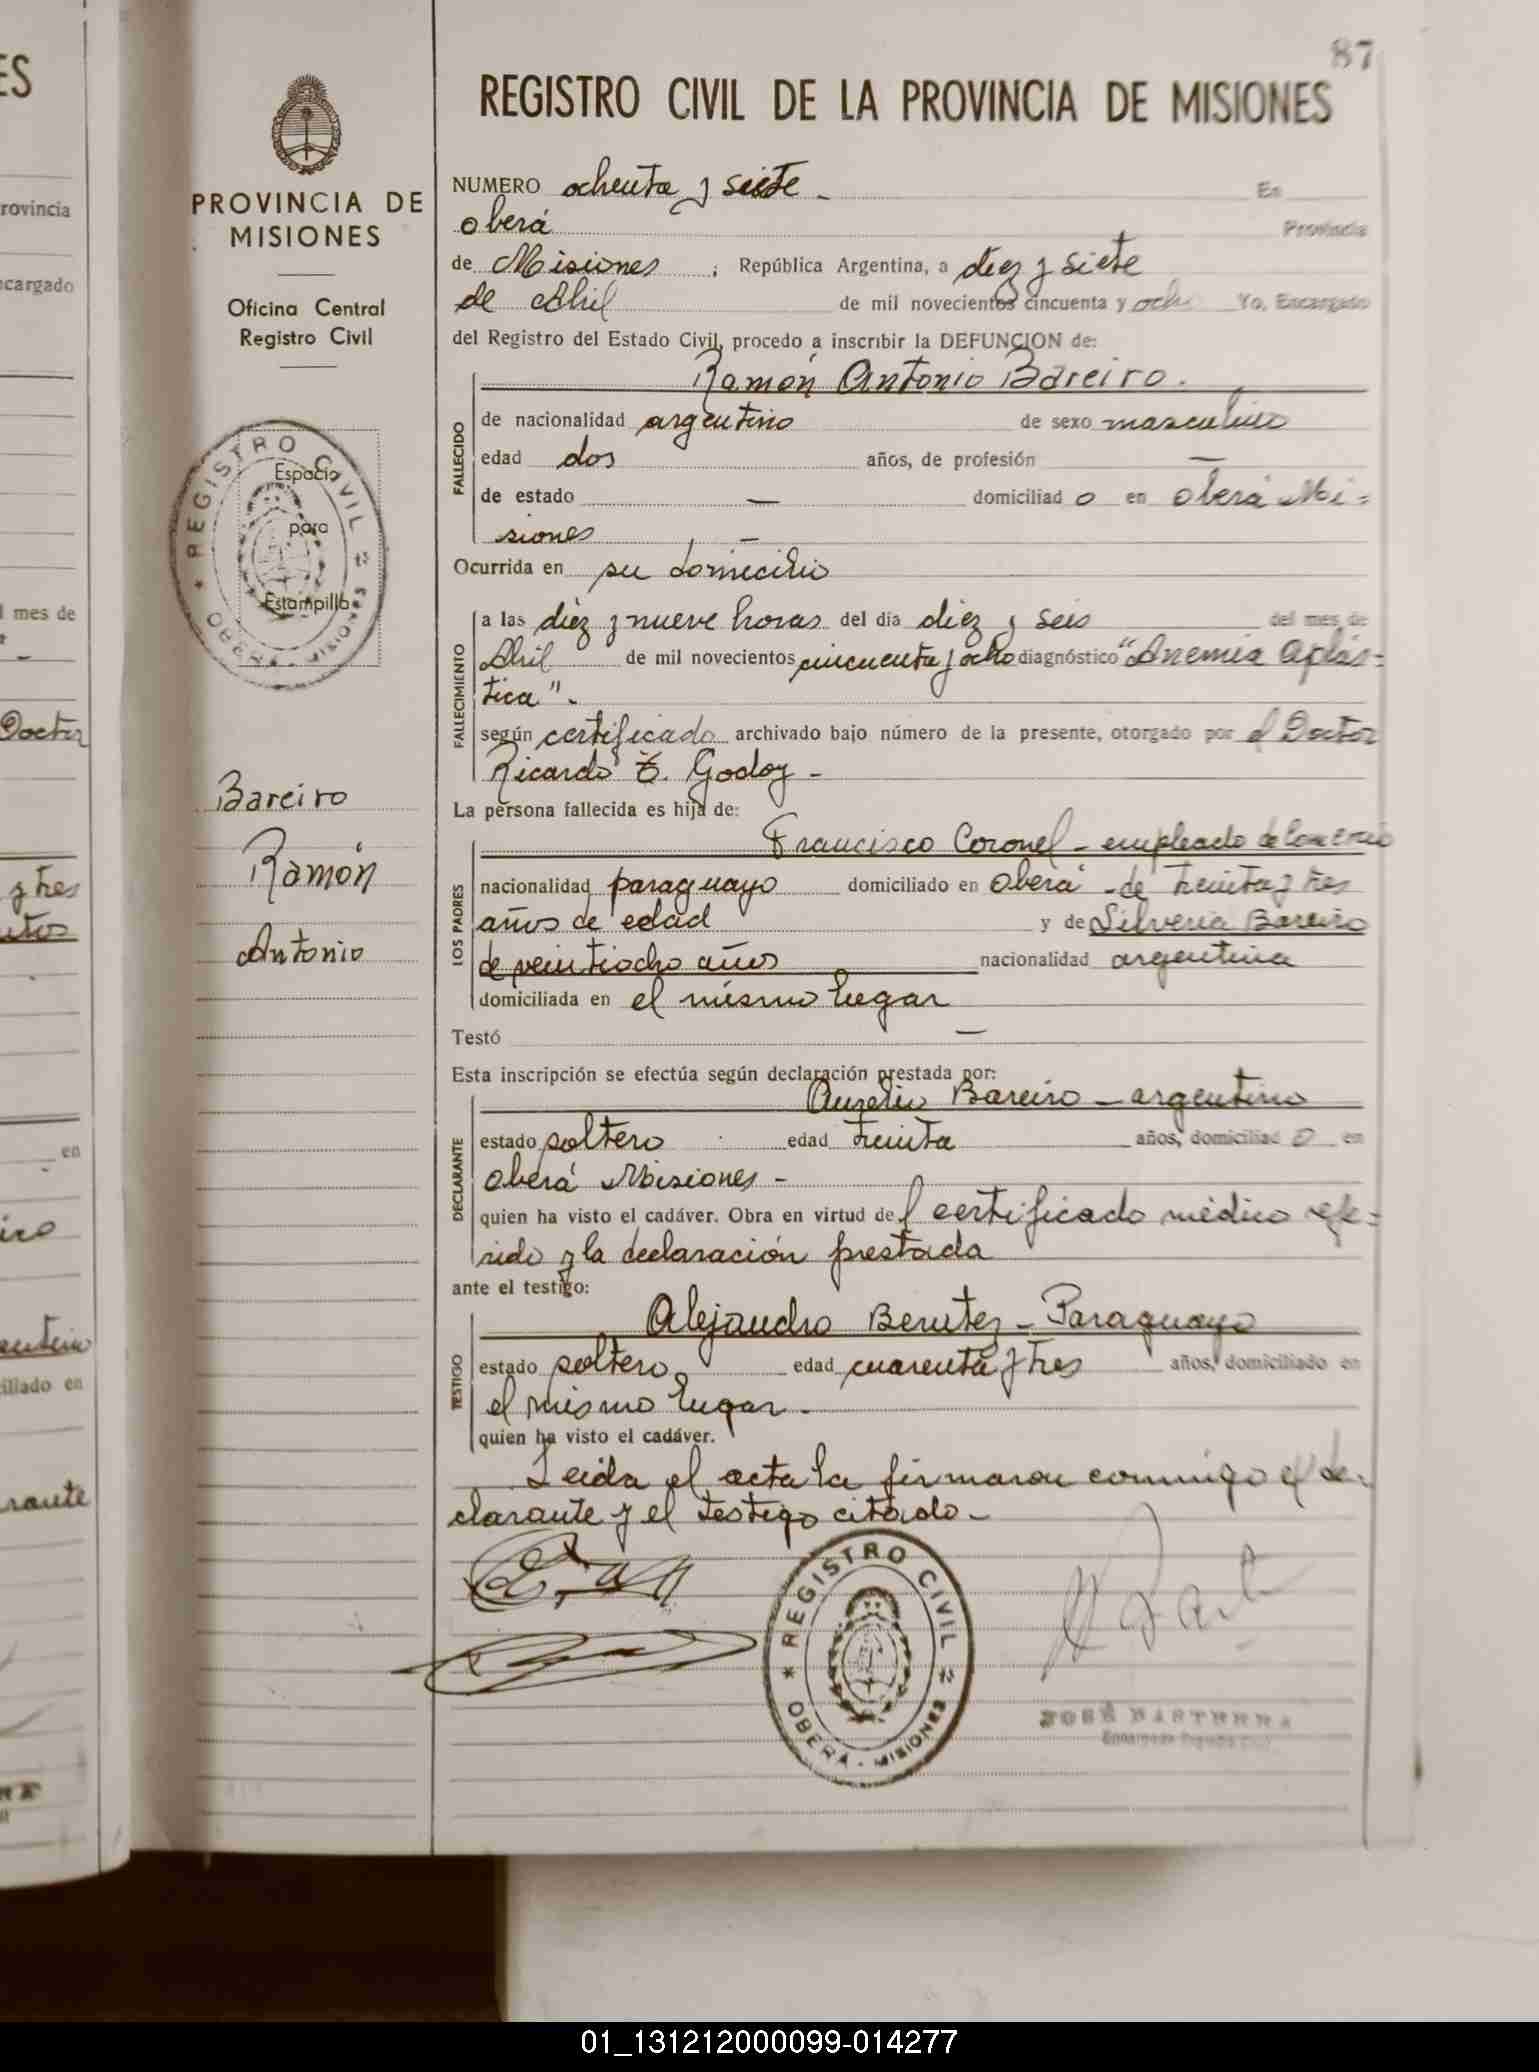 87
REGISTRO CIVIL DE LA PROVINCIA DE MISIONES
PROVINCIA DE
MISIONES
Oficina Central
Registro Civil
REGISTRO CIVIL
OBERÁ - MISIONES
Espacio
para
Estampilla
Bareiro
Ramón
Antonio
NUMERO ochenta y siete - En
oberá Provincia
de Misiones ; República Argentina, a diez y siete
de Abril de mil novecientos cincuenta y ocho Yo, Encargado
del Registro del Estado Civil, procedo a inscribir la DEFUNCION de:
Ramón Antonio Bareiro.
FALLECIDO
de nacionalidad argentino de sexo masculino
edad dos años, de profesión —
de estado — domiciliad o en oberá Mi=
siones —
Ocurrida en su domicilio
FALLECIMIENTO
a las diez y nueve horas del día diez y seis del mes de
Abril de mil novecientos cincuenta y ocho diagnóstico "Anemia aplás=
tica" -
según certificado archivado bajo número de la presente, otorgado por el Doctor
Ricardo E. Godoy -
La persona fallecida es hija de:
LOS PADRES
Francisco Coronel - empleado de Comercio
nacionalidad paraguayo domiciliado en oberá - de treinta y tres
años de edad y de Silveria Bareiro
de veintiocho años nacionalidad argentina
domiciliada en el mismo lugar
Testó —
Esta inscripción se efectúa según declaración prestada por:
DECLARANTE
Aurelio Bareiro - argentino
estado soltero edad treinta años, domiciliad o en
oberá Misiones -
quien ha visto el cadáver. Obra en virtud del certificado médico refe=
rido y la declaración prestada
ante el testigo:
TESTIGO
Alejandro Benitez - Paraguayo
estado soltero edad cuarenta y tres años, domiciliado en
el mismo lugar -
quien ha visto el cadáver.
Leida el acta la firmaron conmigo el de-
clarante y el testigo citado -
REGISTRO CIVIL
OBERÁ - MISIONES
JOSÉ BASTERRA
01_131212000099-014277